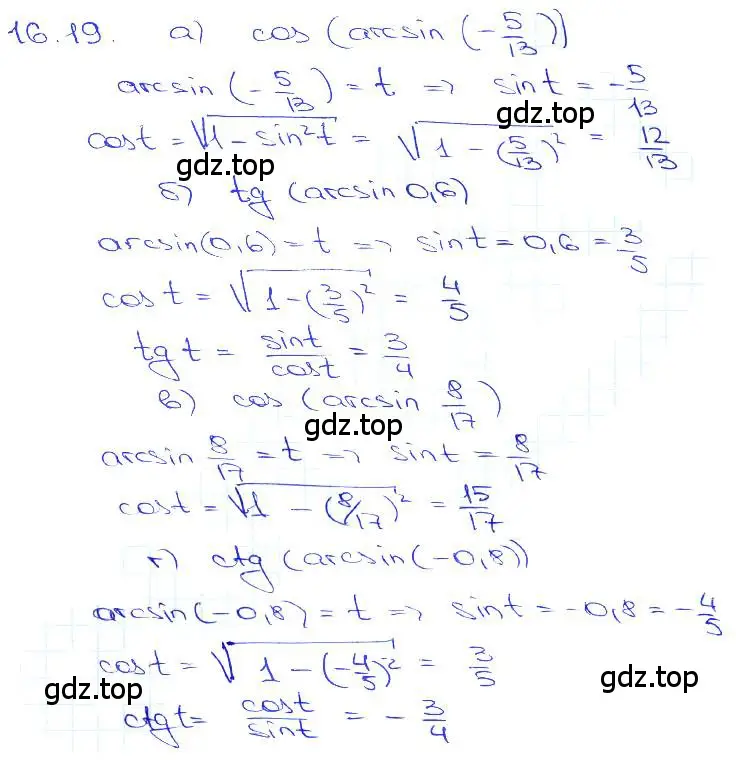 16.19. а) cos (arcsin (-5/13))
arcsin (-5/13) = t => sin t = -5/13
gdz.top
cos t = √(1 - sin²t) = √(1 - (5/13)²) = 12/13
gdz.top
б) tg (arcsin 0,6)
arcsin(0,6) = t => sin t = 0,6 = 3/5
cos t = √(1 - (3/5)²) = 4/5
tg t = sin t/cos t = 3/4
в) cos (arcsin 8/17)
gdz.top
arcsin 8/17 = t => sin t = 8/17
cos t = √(1 - (8/17)²) = 15/17
г) ctg (arcsin(-0,8))
arcsin(-0,8) = t => sin t = -0,8 = -4/5
cos t = √(1 - (-4/5)²) = 3/5
gdz.top
gdz.top
ctg t = cos t/sin t = -3/4